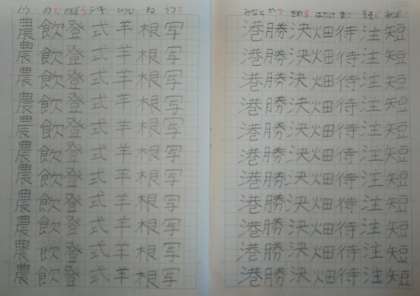 農飲登式羊根写
農飲登式羊根写
農飲登式羊根写
農飲登式羊根写
農飲登式羊根写
農飲登式羊根写
農飲登式羊根写
農飲登式羊根写
農飲登式羊根写
農飲登式羊根写
農飲登式羊根写
港勝決畑待注短
港勝決畑待注短
港勝決畑待注短
港勝決畑待注短
港勝決畑待注短
港勝決畑待注短
港勝決畑待注短
港勝決畑待注短
港勝決畑待注短
港勝決畑待注短
港勝決畑待注短